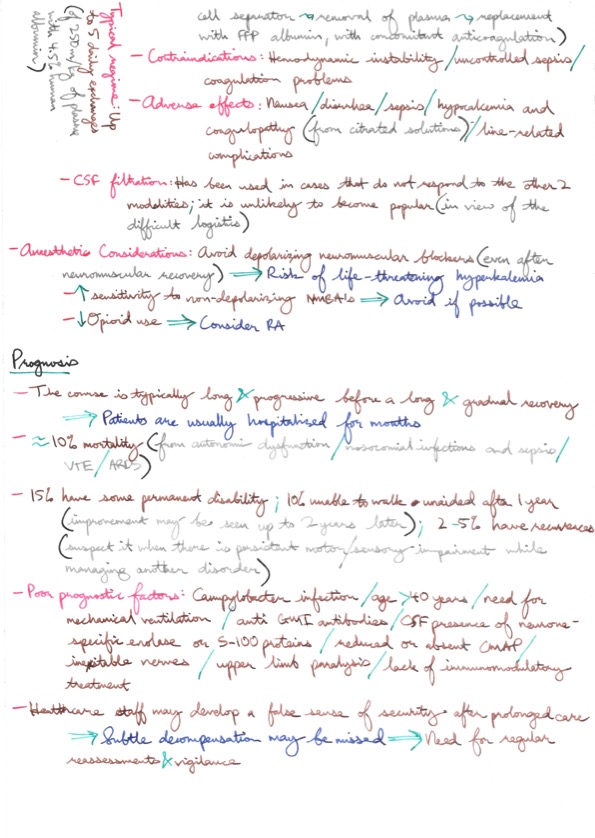 Typical regime: Up
to 5 daily exchanges
(of 250ml/kg of plasma
with 4.5% human
albumin)
cell separator → removal of plasma → replacement
with FFP albumin, with concomitant anticoagulation)
- Contraindications: Hemodynamic instability/uncontrolled sepsis/
coagulation problems
- Adverse effects: Nausea/diarrhea/sepsis/hypocalcemia and
coagulopathy (from citrated solutions)/line-related
complications
- CSF filtration: Has been used in cases that do not respond to the other 2
modalities; it is unlikely to become popular (in view of the
difficult logistics)
- Anaesthetic Considerations: Avoid depolarizing neuromuscular blockers (even after
neuromuscular recovery) ⇒ Risk of life-threatening hyperkalemia
- ↑ sensitivity to non-depolarizing NMBA's ⇒ Avoid if possible
- ↓ Opioid use ⇒ Consider RA
Prognosis
- The course is typically long & progressive before a long & gradual recovery
⇒ Patients are usually hospitalized for months
- ≈ 10% mortality (from autonomic dysfunction/nosocomial infections and sepsis/
VTE/ARDS)
- 15% have some permanent disability; 10% unable to walk unaided after 1 year
(improvement may be seen up to 2 years later); 2-5% have recurrences
(suspect it when there is persistent motor/sensory impairment while
managing another disorder)
- Poor prognostic factors: Campylobacter infection/age >40 years/need for
mechanical ventilation/anti GM1 antibodies/CSF presence of neurone-
specific enolase or S-100 proteins/reduced or absent CMAP/
inexcitable nerves/upper limb paralysis/lack of immunomodulatory
treatment
- Healthcare staff may develop a false sense of security after prolonged care
⇒ Subtle decompensation may be missed ⇒ Need for regular
reassessments & vigilance